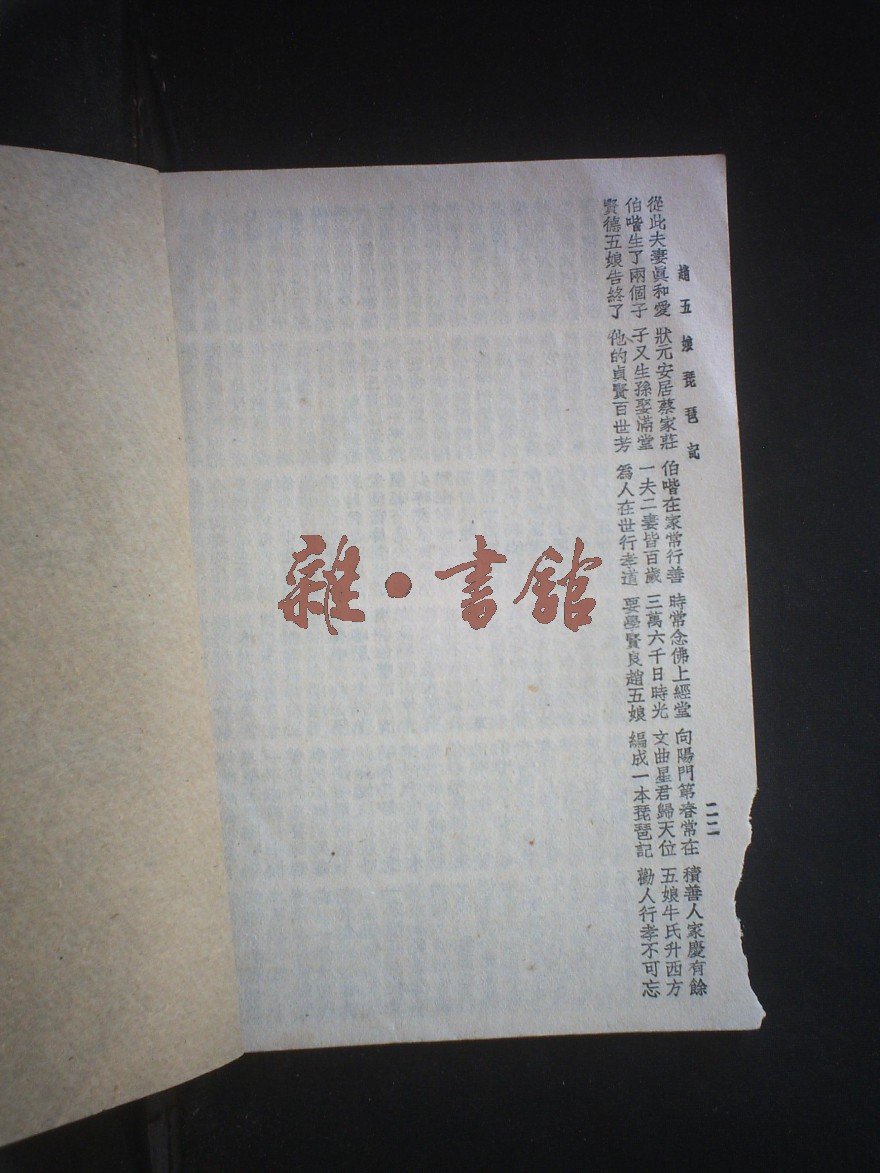 趙五娘琵琶記
二二
從此夫妻眞和愛 狀元安居蔡家莊 伯喈在家常行善 時常念佛上經堂 向陽門第春常在 積善人家慶有餘
伯喈生了兩個子 子又生孫娶滿堂 一夫二妻皆百歲 三萬六千日時光 文曲星君歸天位 五娘牛氏升西方
賢德五娘告終了 他的貞賢百世芳 為人在世行孝道 要學賢良趙五娘 編成一本琵琶記 勸人行孝不可忘
雜·書舘